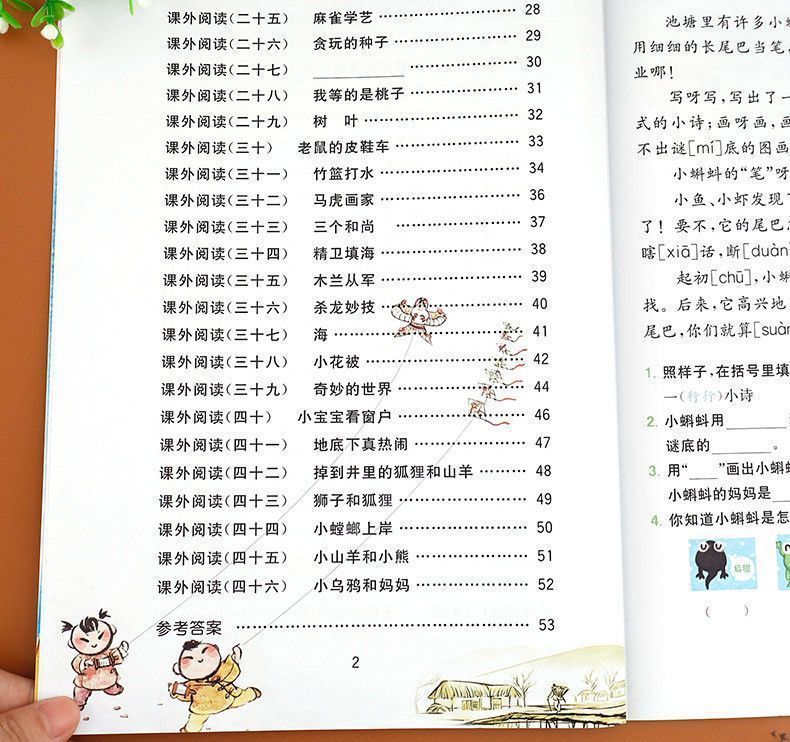 课外阅读(二十五) 麻雀学艺 …………………… 28
课外阅读(二十六) 贪玩的种子 ……………… 29
课外阅读(二十七) __________ ……………… 30
课外阅读(二十八) 我等的是桃子 …………… 31
课外阅读(二十九) 树 叶 …………………… 32
课外阅读(三十) 老鼠的皮鞋车 ……………… 33
课外阅读(三十一) 竹篮打水 ………………… 34
课外阅读(三十二) 马虎画家 ………………… 36
课外阅读(三十三) 三个和尚 ………………… 37
课外阅读(三十四) 精卫填海 ………………… 38
课外阅读(三十五) 木兰从军 ………………… 39
课外阅读(三十六) 杀龙妙技 ………………… 40
课外阅读(三十七) 海 ………………………… 41
课外阅读(三十八) 小花被 …………………… 42
课外阅读(三十九) 奇妙的世界 ……………… 44
课外阅读(四十) 小宝宝看窗户 ……………… 46
课外阅读(四十一) 地底下真热闹 …………… 47
课外阅读(四十二) 掉到井里的狐狸和山羊 …… 48
课外阅读(四十三) 狮子和狐狸 ……………… 49
课外阅读(四十四) 小螳螂上岸 ……………… 50
课外阅读(四十五) 小山羊和小熊 …………… 51
课外阅读(四十六) 小乌鸦和妈妈 …………… 52
参考答案 ……………………………………… 53
2
池塘里有许多小
用细细的长尾巴当笔,
业哪!
写呀写,写出了一
式的小诗;画呀画,画
不出谜[mí]底的图画
小蝌蚪的“笔”呀
小鱼、小虾发现了
了!要不,它的尾巴怎
瞎[xiā]话,断[duàn
起初[chū],小蝌
找。后来,它高兴地
尾巴,你们就算[suàn
1. 照样子,在括号里填
一(行行)小诗
2. 小蝌蚪用______
谜底的______。
3. 用“___”画出小蝌蚪
小蝌蚪的妈妈是__
4. 你知道小蝌蚪是怎
后腿
( )